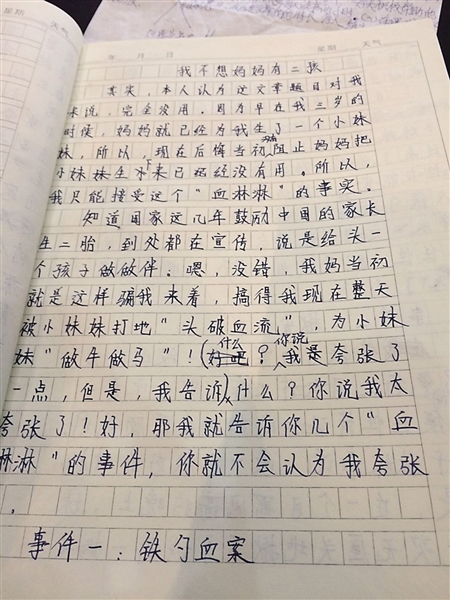 星期 天气
年 月 日 星期 天气
我不想妈妈有二孩
其实，本人认为这文章题目对我
来说，完全没用。因为早在我三岁的
时候，妈妈就已经为我生了一个小妹
妹，所以，现在后悔当初 阻止妈妈把
小妹妹生下来已经没有用。所以，
我只能接受这个“血淋淋”的事实。
知道国家这几年鼓励中国的家长
生二胎，到处都在宣传，说是给头一
个孩子做做伴。嗯，没错，我妈当初
就是这样骗我来着，搞得我现在整天
被小妹妹打地“头破血流”，为小妹
妹“做牛做马”！什么？你说我是夸张了
一点，但是，我告诉 什么？你说我太
夸张了！好，那我就告诉你几个“血
淋淋”的事件，你就不会认为我夸张
。
事件一：铁勺血案